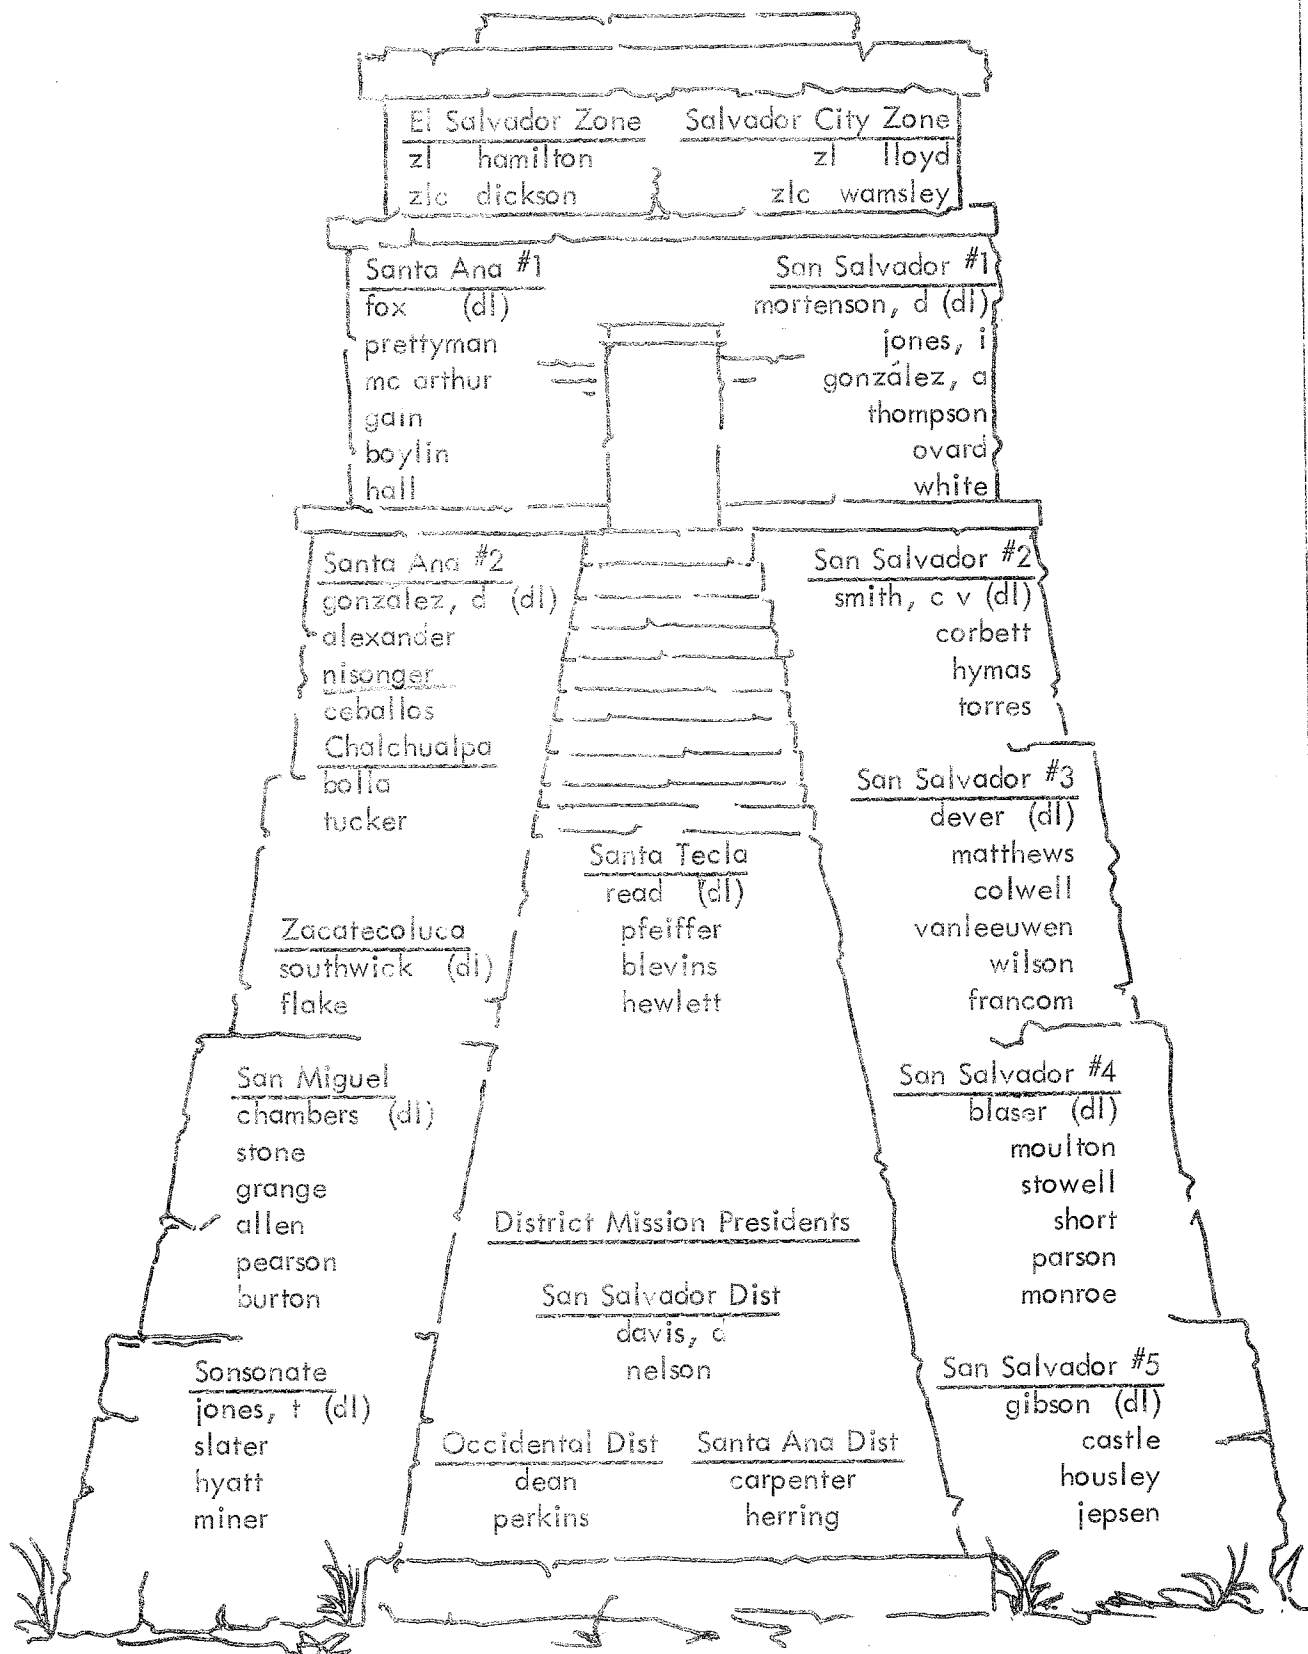 El Salvador Zone
zl hamilton
zlc dickson
Salvador City Zone
zl lloyd
zlc wamsley
Santa Ana #1
fox (dl)
prettyman
mc arthur
gain
boylin
hall
San Salvador #1
mortenson, d (dl)
jones, i
gonzález, a
thompson
ovard
white
Santa Ana #2
gonzález, d (dl)
alexander
nisonger
ceballos
Chalchualpa
bolla
tucker
San Salvador #2
smith, c v (dl)
corbett
hymas
torres
San Salvador #3
dever (dl)
matthews
colwell
vanleeuwen
wilson
francom
Santa Tecla
read (dl)
pfeiffer
blevins
hewlett
Zacatecoluca
southwick (dl)
flake
San Miguel
chambers (dl)
stone
grange
allen
pearson
burton
San Salvador #4
blaser (dl)
moulton
stowell
short
parson
monroe
District Mission Presidents
San Salvador Dist
davis, d
nelson
Sonsonate
jones, t (dl)
slater
hyatt
miner
Occidental Dist
dean
perkins
Santa Ana Dist
carpenter
herring
San Salvador #5
gibson (dl)
castle
housley
jepsen